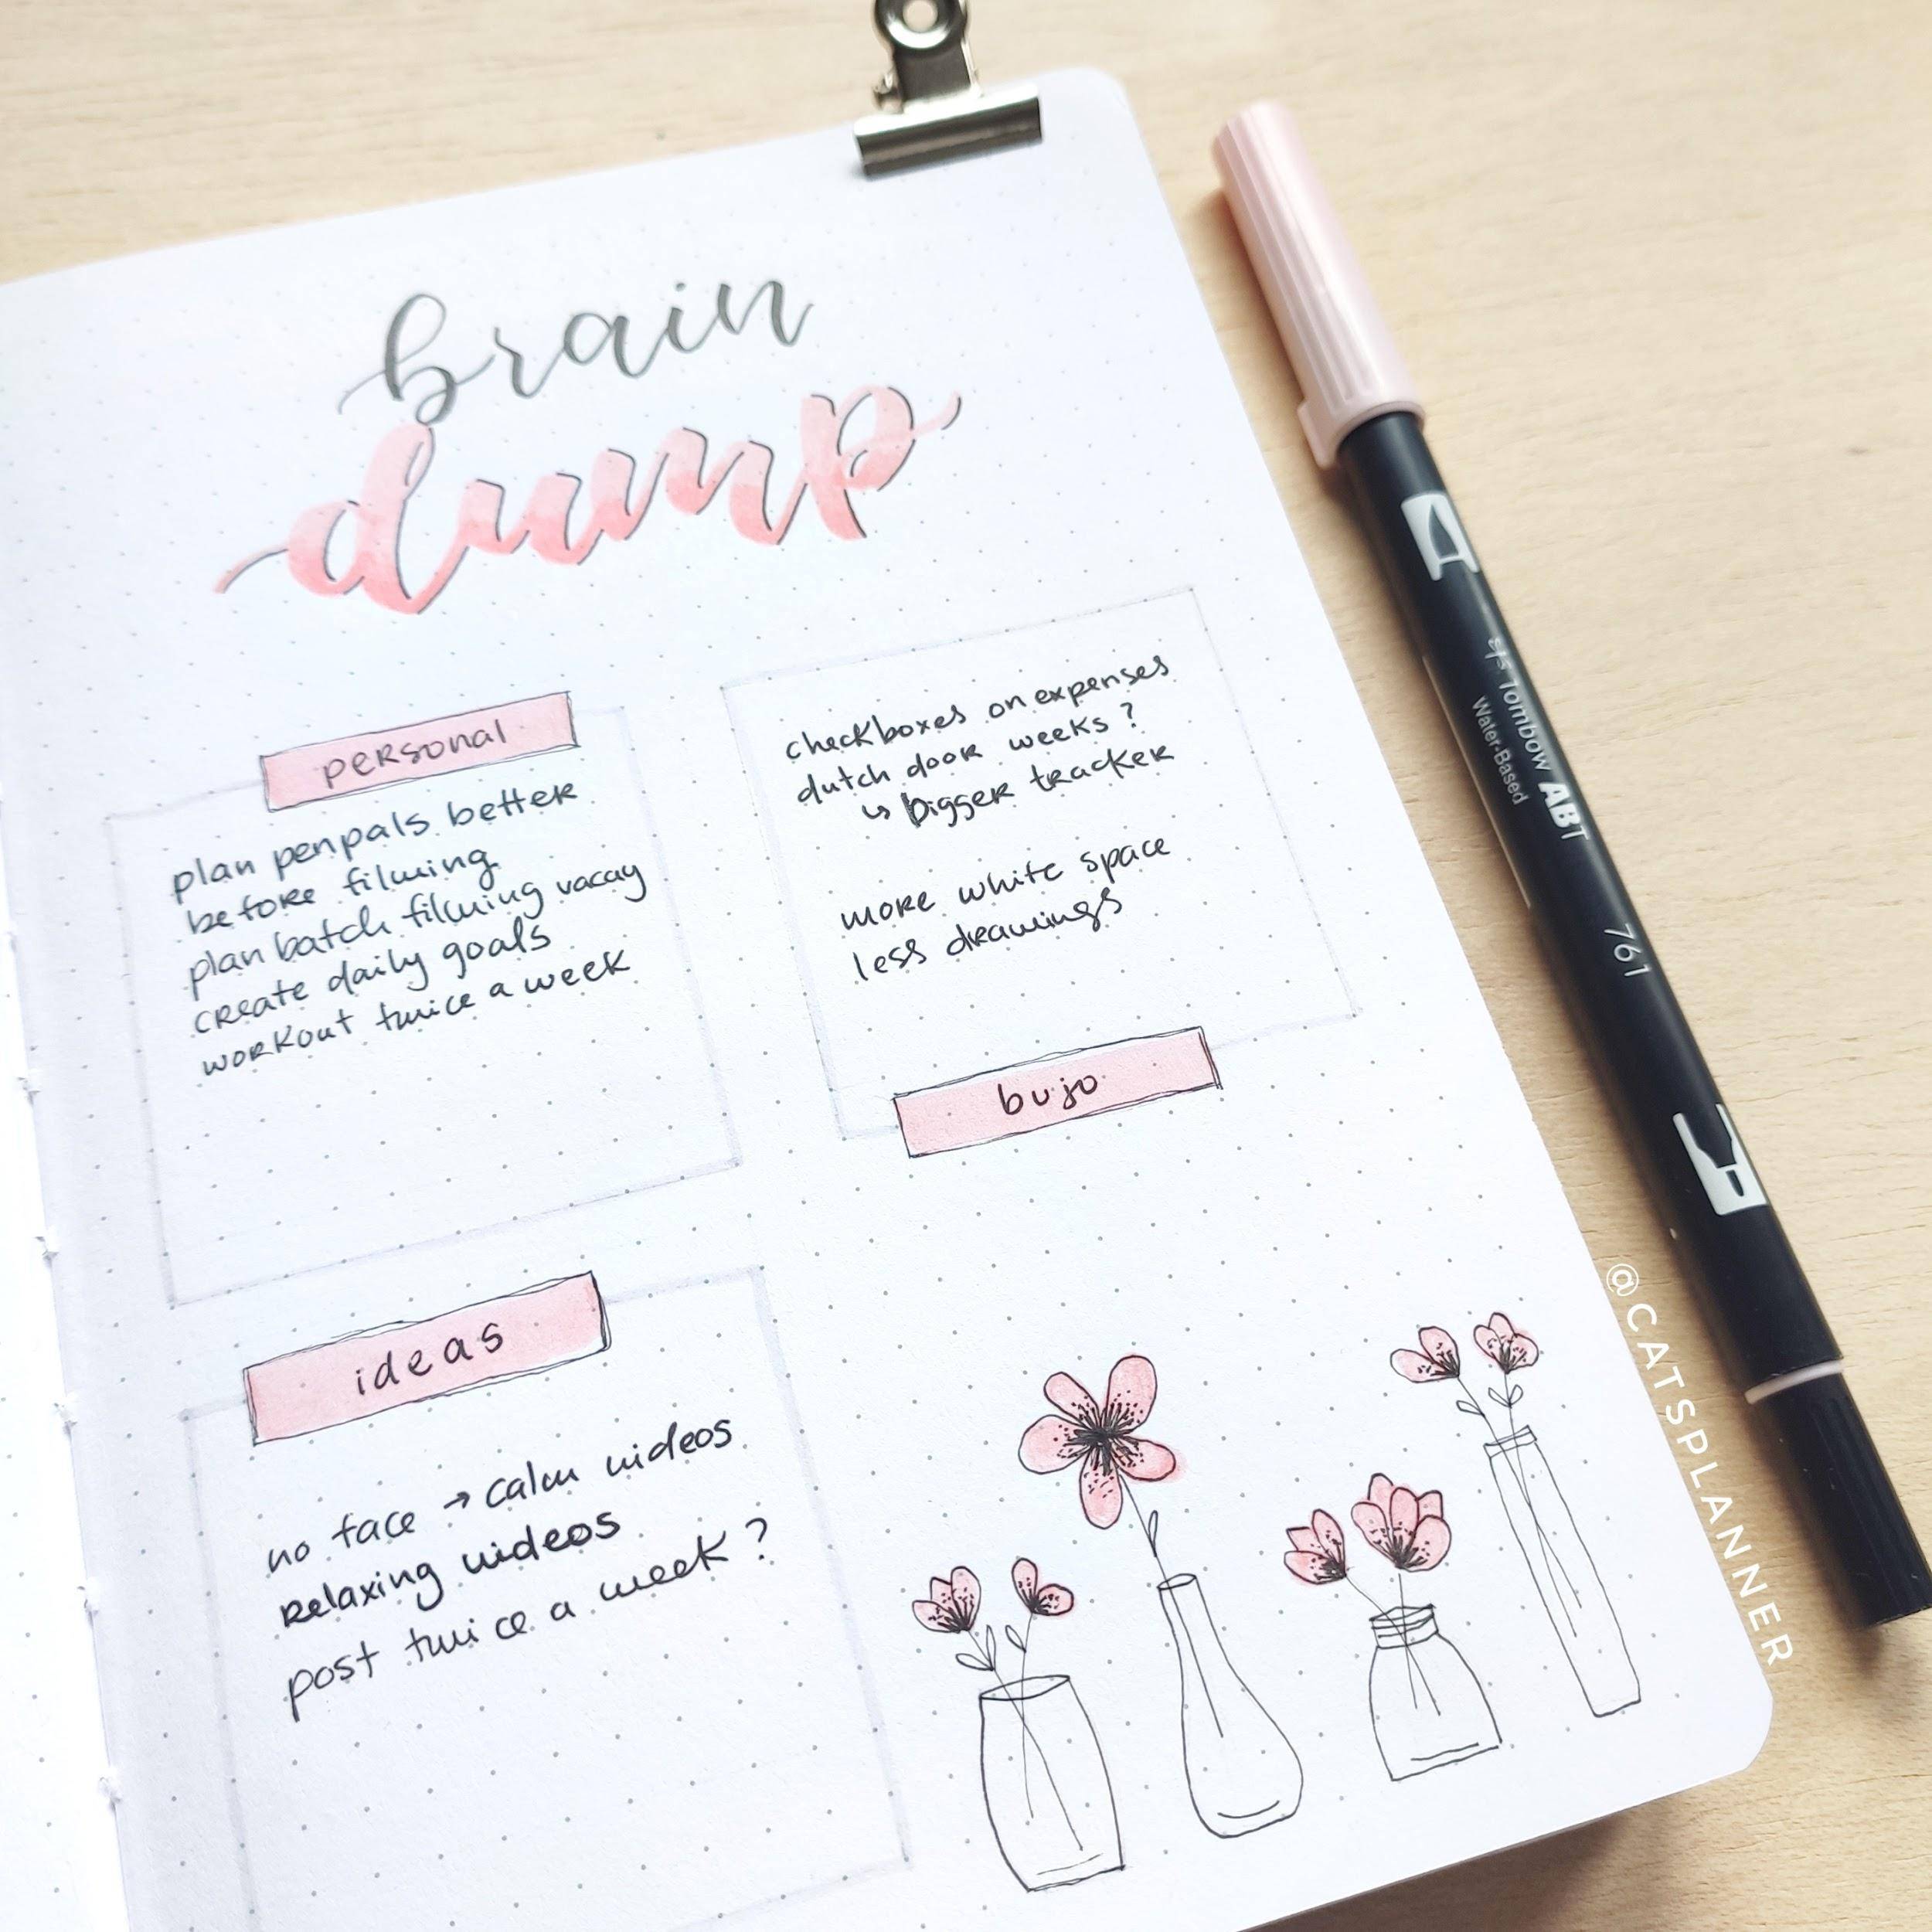 brain
dump
personal
plan penpals better
before filming
plan batch filming vacay
create daily goals
workout twice a week
checkboxes on expenses
dutch door weeks?
↳ bigger tracker
more white space
less drawings
bujo
ideas
no face → calm videos
relaxing videos
post twice a week?
Tombow ABT
Water-Based
761
@CATSPLANNER